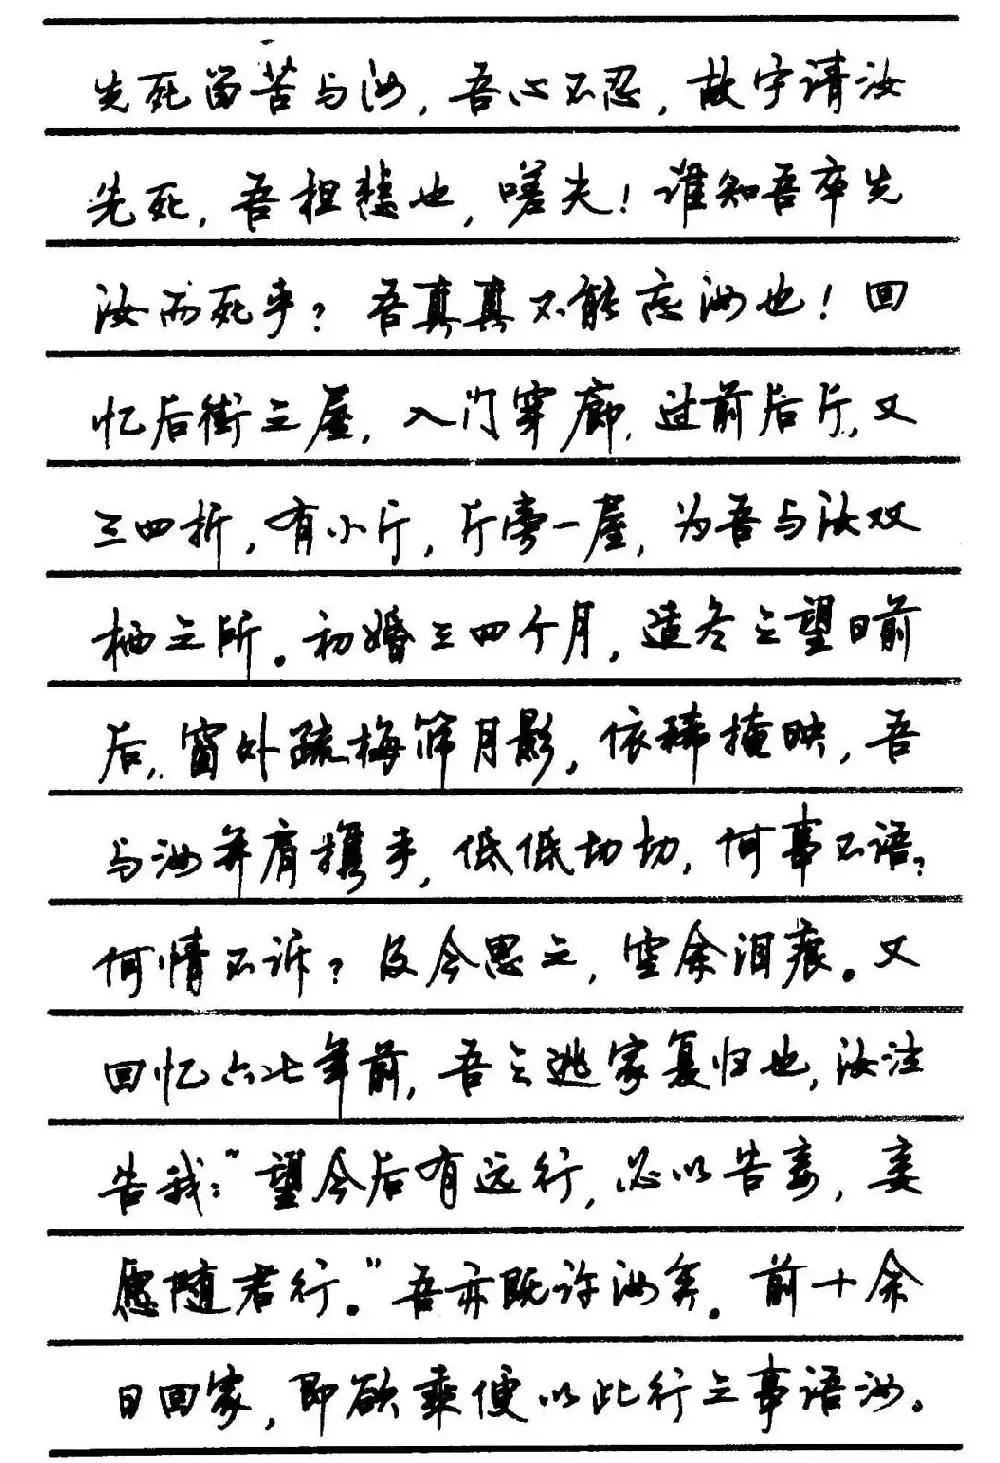 先死留苦与汝，吾心不忍，故宁请汝
先死，吾担悲也，嗟夫！谁知吾卒先
汝而死乎？吾真真不能忘汝也！回
忆后街之屋，入门穿廊，过前后厅，又
三四折，有小厅，厅旁一屋，为吾与汝双
栖之所。初婚三四个月，适冬之望日前
后，窗外疏梅筛月影，依稀掩映，吾
与汝并肩携手，低低切切，何事不语？
何情不诉？及今思之，空余泪痕。又
回忆六七年前，吾之逃家复归也，汝泣
告我：“望今后有远行，必以告妾，妾
愿随君行。”吾亦既许汝矣。前十余
日回家，即欲乘便以此行之事语汝。